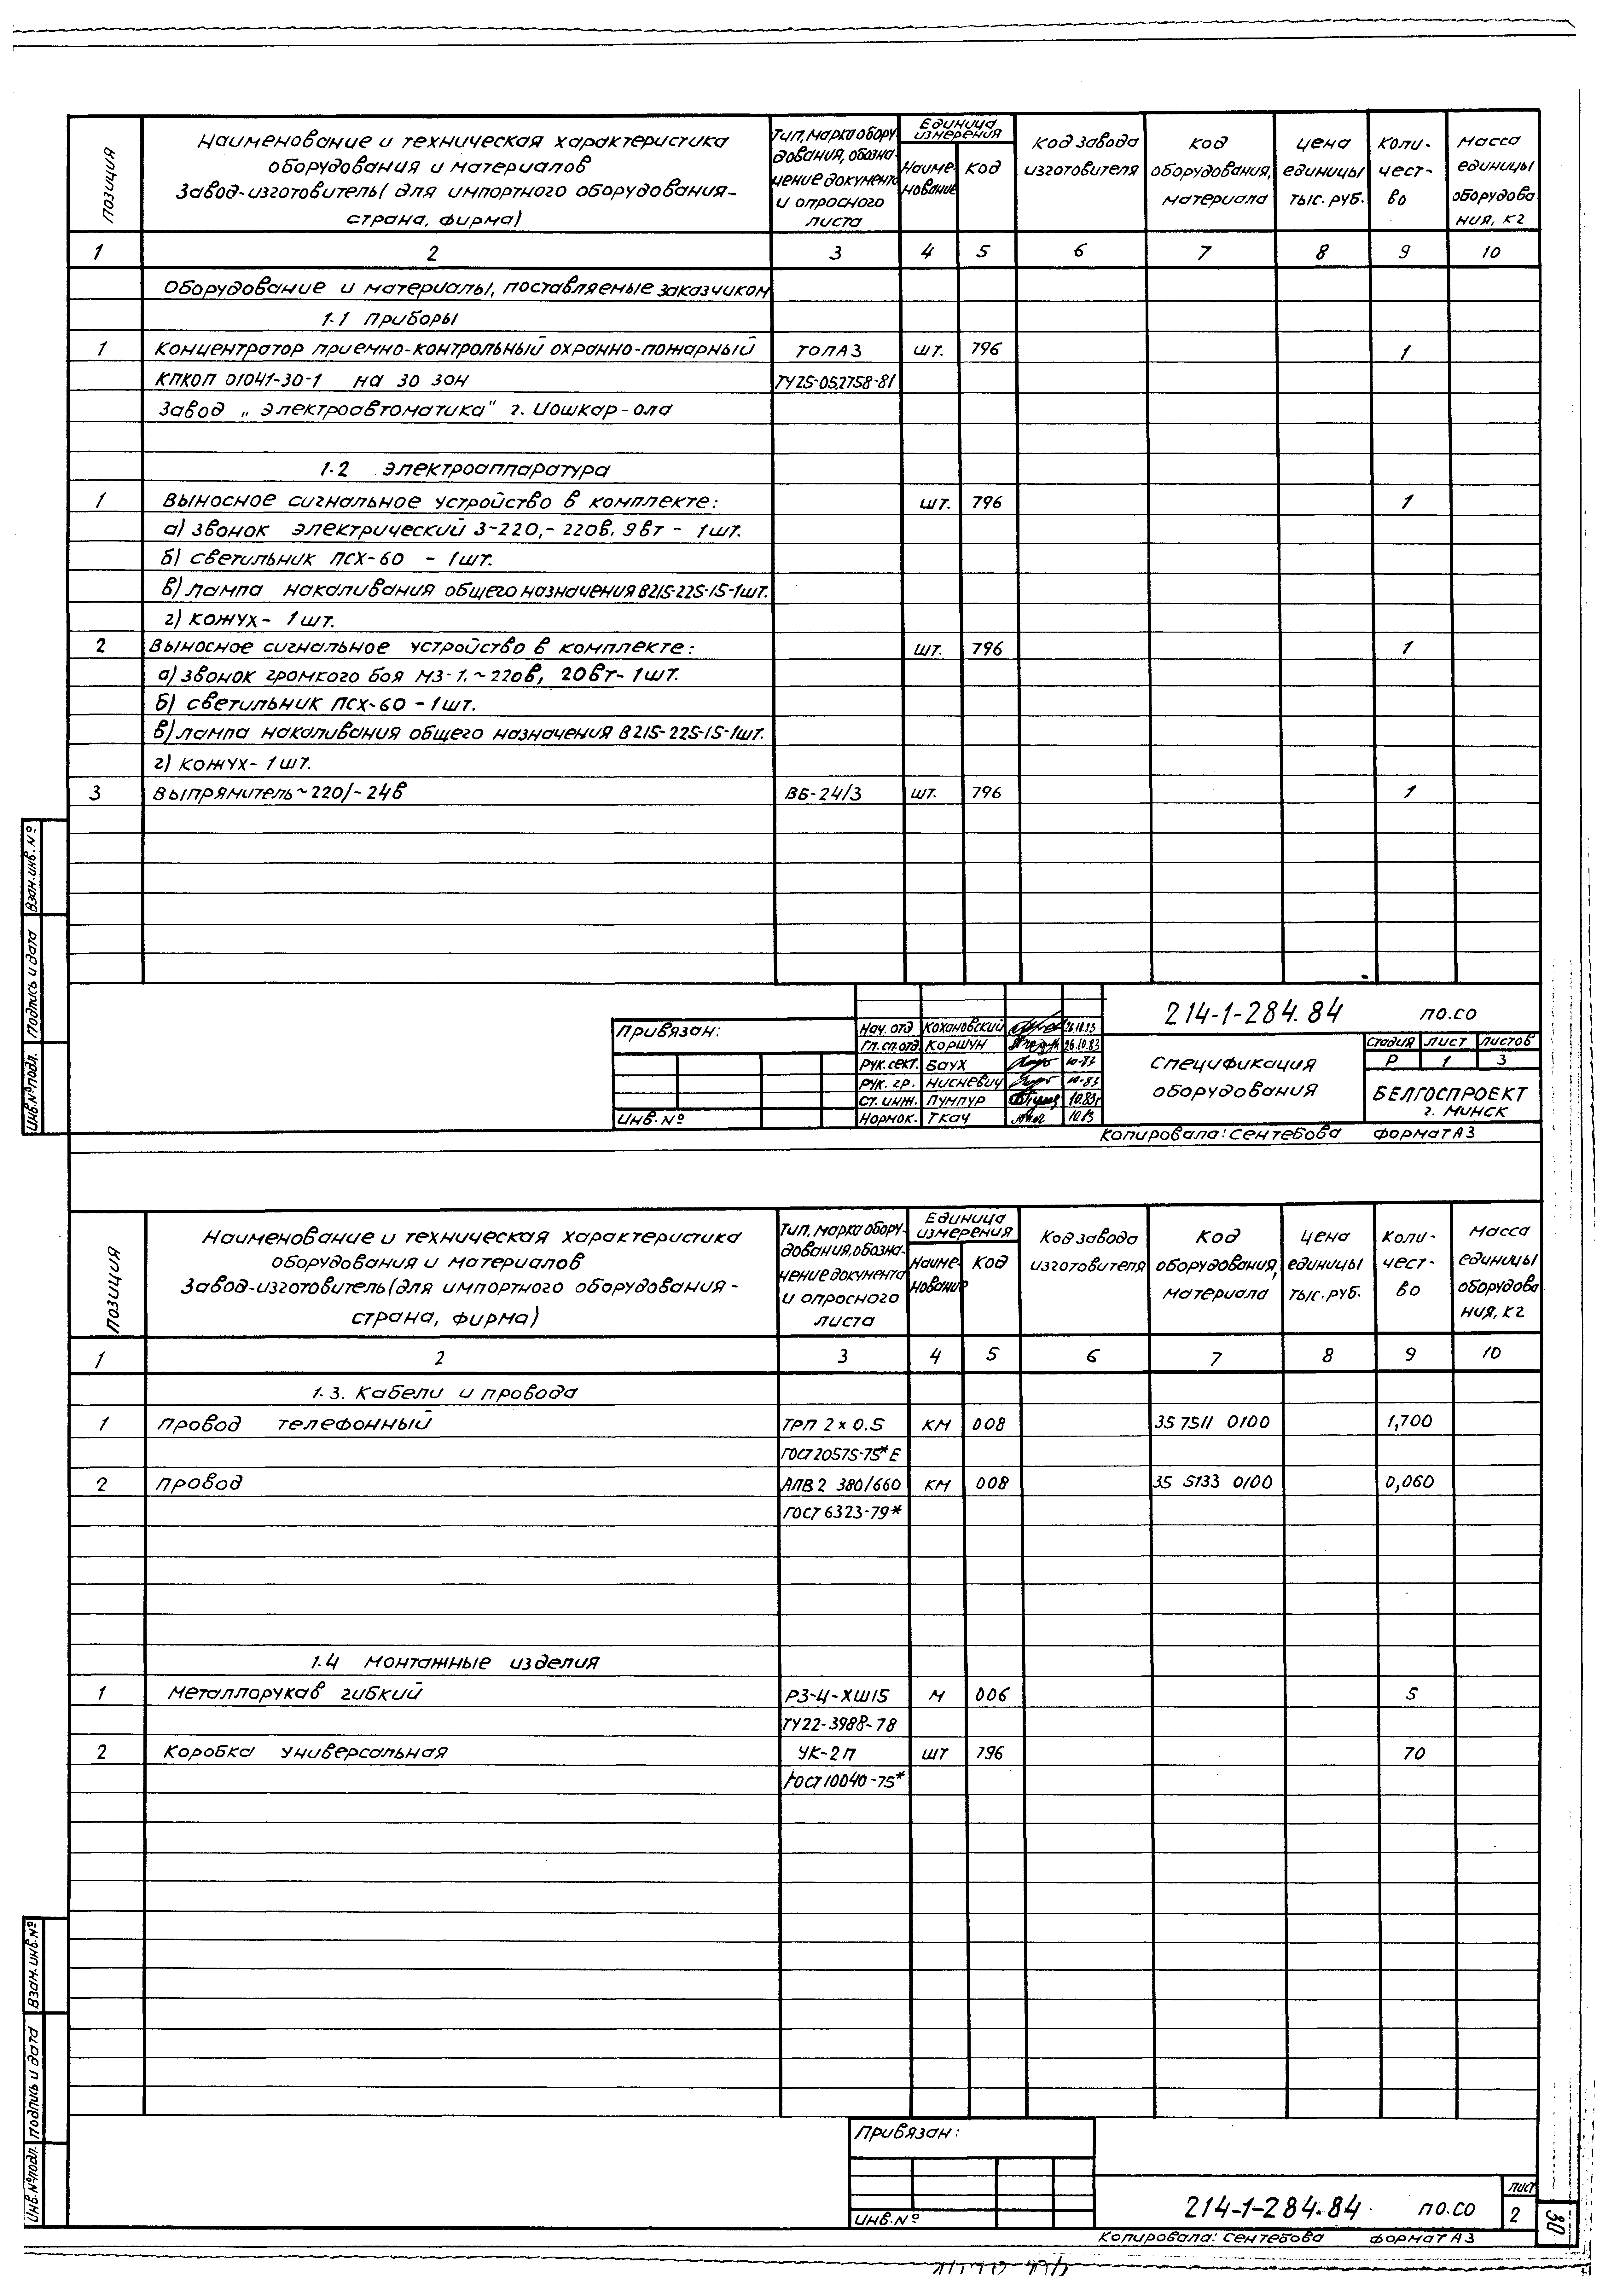 Позиция
Наименование и техническая характеристика
оборудования и материалов
Завод-изготовитель (для импортного оборудования-
страна, фирма)
Тип, марка обору-
дования, обозна-
чение документа
и опросного
листа
Единица
измерения
Наиме-
нование
Код
Код завода
изготовителя
Код
оборудования,
материала
Цена
единицы
тыс. руб.
Коли-
чест-
во
Масса
единицы
оборудова
ния, кг
1 2 3 4 5 6 7 8 9 10
Оборудование и материалы, поставляемые заказчиком
1.1 Приборы
1 Концентратор приемно-контрольный охранно-пожарный ТОПАЗ шт. 796 1
КПКОП 01041-30-1 на 30 зон ТУ25-05.2758-81
Завод „Электроавтоматика" г. Йошкар-Ола
1.2 Электроаппаратура
1 Выносное сигнальное устройство в комплекте: шт. 796 1
а) звонок электрический З-220,~220в, 9вт - 1шт.
б) светильник ПСХ-60 - 1шт.
в) лампа накаливания общего назначения В215-225-15-1шт.
г) кожух - 1шт.
2 Выносное сигнальное устройство в комплекте: шт. 796 1
а) звонок громкого боя МЗ-1. ~220в, 20вт- 1шт.
б) светильник ПСХ-60 - 1шт.
в) лампа накаливания общего назначения В215-225-15-1шт.
г) кожух- 1шт.
3 Выпрямитель ~220/-24в ВБ-24/3 шт. 796 1
Взан. инв. №
Подпись и дата
Инв. № подл.
Привязан:
Инв. №
Нач. отд Кохановский 26.10.83
Гл. сп. отд. Коршун 26.10.83
Рук. сект. Баух 10-83
Рук. гр. Нисневич 10-83
Ст. инж. Пумпур 10.83г
Нормок. Ткач 10.83
214-1-284.84 ПО.СО
Спецификация
оборудования
Стадия Лист Листов
Р 1 3
БЕЛГОСПРОЕКТ
г. Минск
Копировала: Сентебова Формат А3
Позиция
Наименование и техническая характеристика
оборудования и материалов
Завод-изготовитель (для импортного оборудования-
страна, фирма)
Тип, марка обору-
дования, обозна-
чение документа
и опросного
листа
Единица
измерения
Наиме-
нование
Код
Код завода
изготовителя
Код
оборудования,
материала
Цена
единицы
тыс. руб.
Коли-
чест-
во
Масса
единицы
оборудова
ния, кг
1 2 3 4 5 6 7 8 9 10
1.3. Кабели и провода
1 Провод телефонный ТРП 2×0.5 КМ 008 35 7511 0100 1,700
ГОСТ 20575-75*Е
2 Провод АПВ 2 380/660 КМ 008 35 5133 0100 0,060
ГОСТ 6323-79*
1.4 Монтажные изделия
1 Металлорукав гибкий РЗ-Ц-ХШ15 М 006 5
ТУ22-3988-78
2 Коробка универсальная УК-2П шт 796 70
ГОСТ 10040-75*
Взан. инв. №
Подпись и дата
Инв. № подл.
Привязан:
Инв. №
214-1-284.84 ПО.СО
Лист
2
30
Копировала: Сентебова Формат А3